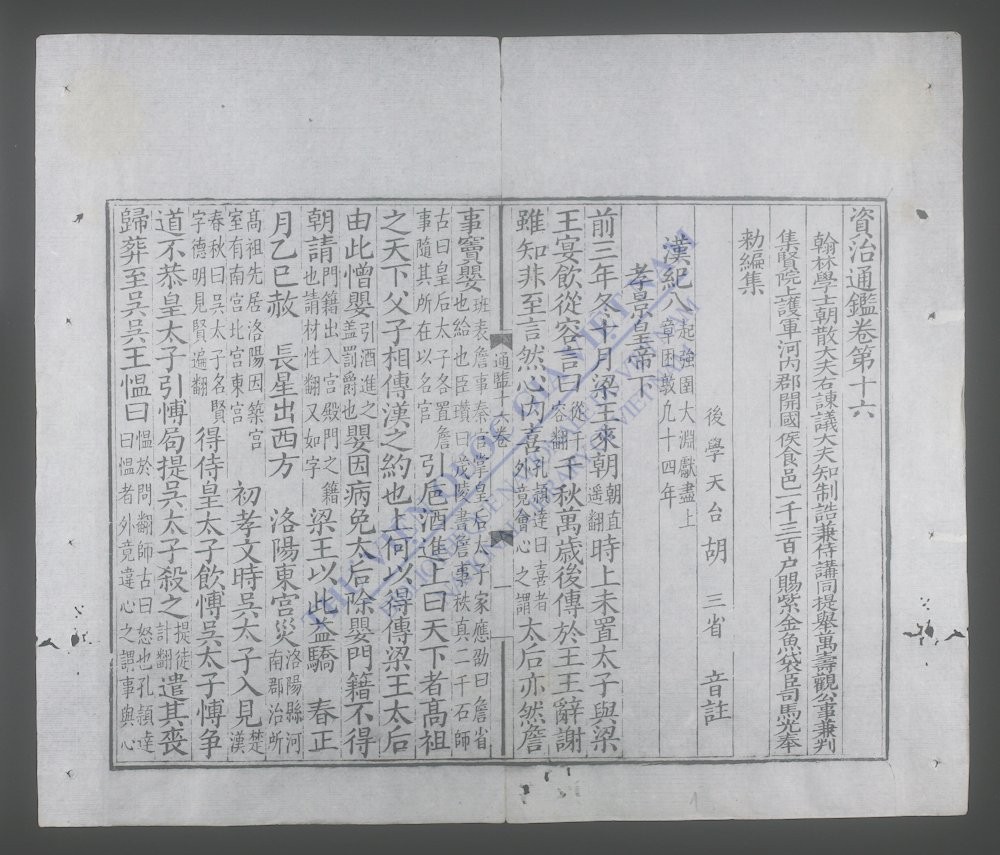 資治通鑑卷第十六
翰林學士朝散大夫右諫議大夫知制誥兼侍講同提舉萬壽觀公事兼判
集賢院上護軍河內郡開國侯食邑一千三百户賜紫金魚袋臣司馬光奉
勑編集
後學天台胡三省音註
漢紀八起強圉大淵獻盡上章困敦九十四年
孝景皇帝下
前三年冬十月梁王來朝朝直遥翻時上未置太子與梁
王宴飲從容言曰從千容翻千秋萬歲後傳於王王辭謝
雖知非至言然心内喜孔頴達曰喜者外竟會心之謂太后亦然詹
通鑑十六卷
一
事竇嬰班表詹事秦官掌皇后太子家應劭曰詹省也給也臣瓚曰茂陵書詹事秩真二千石師
古曰皇后太子各置詹事隨其所在以名官引巵酒進上曰天下者高祖
之天下父子相傳漢之約也上何以得傳梁王太后
由此憎嬰引酒進之蓋罰爵也嬰因病免太后除嬰門籍不得
朝請門籍出入宫殿門之籍也請材性翻又如字梁王以此益驕 春正
月乙巳赦 長星出西方 洛陽東宮災洛陽縣河南郡治所
高祖先居洛陽因築宫室有南宫北宫東宫 初孝文時吳太子入見楚漢
春秋曰吳太子名賢字德明見賢遍翻得侍皇太子飲慱吳太子慱争
道不恭皇太子引慱局提吳太子殺之提徒計翻遣其喪
歸葬至吳吳王愠曰愠於問翻師古曰怒也孔頴達曰愠者外竟違心之謂事與心
THƯ VIỆN QUỐC GIA VIỆT NAM
NATIONAL LIBRARY OF VIETNAM
1